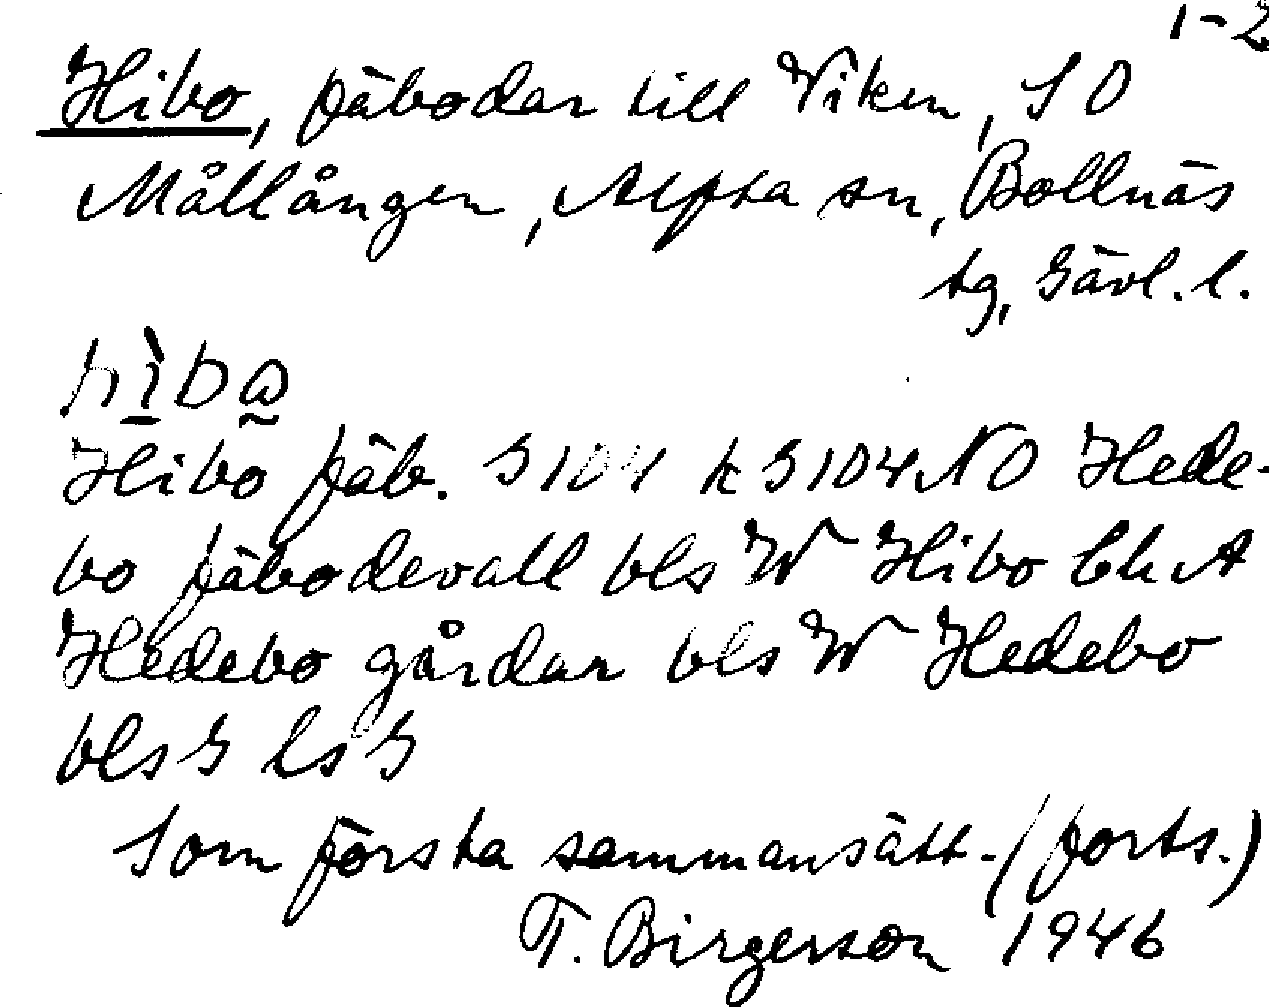 1-2
Hibo, fäbodar till Viken, SO
Mållången, Alfta sn, Bollnäs
tg, Gävl. l.
hìbo
Hibo fäb. G104 k G104NO Hede-
bo fäbodevall bls W Hibo Ch A
Hedebo gårdar bls W Hedebo
bls G ls G
Som första sammansätt- (forts.)
T. Birgerson 1946